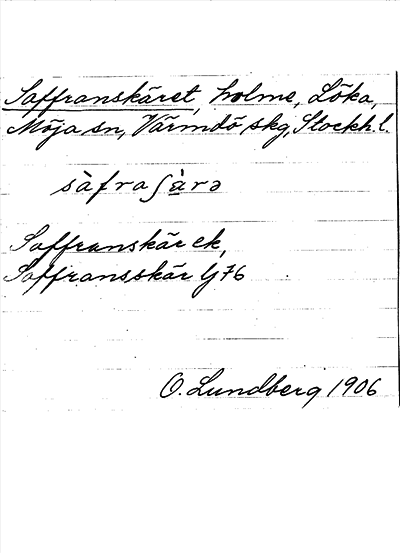 Saffranskäret, holme, Löka,
Möja sn, Värmdö skg, Stockh. l.
sàfraʃà̠rə
Saffranskär ek,
Saffransskär G 76
O. Lundberg 1906